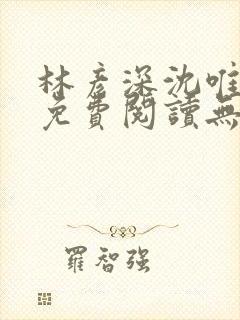 林彦深沈唯
免費閱讀無
羅智强